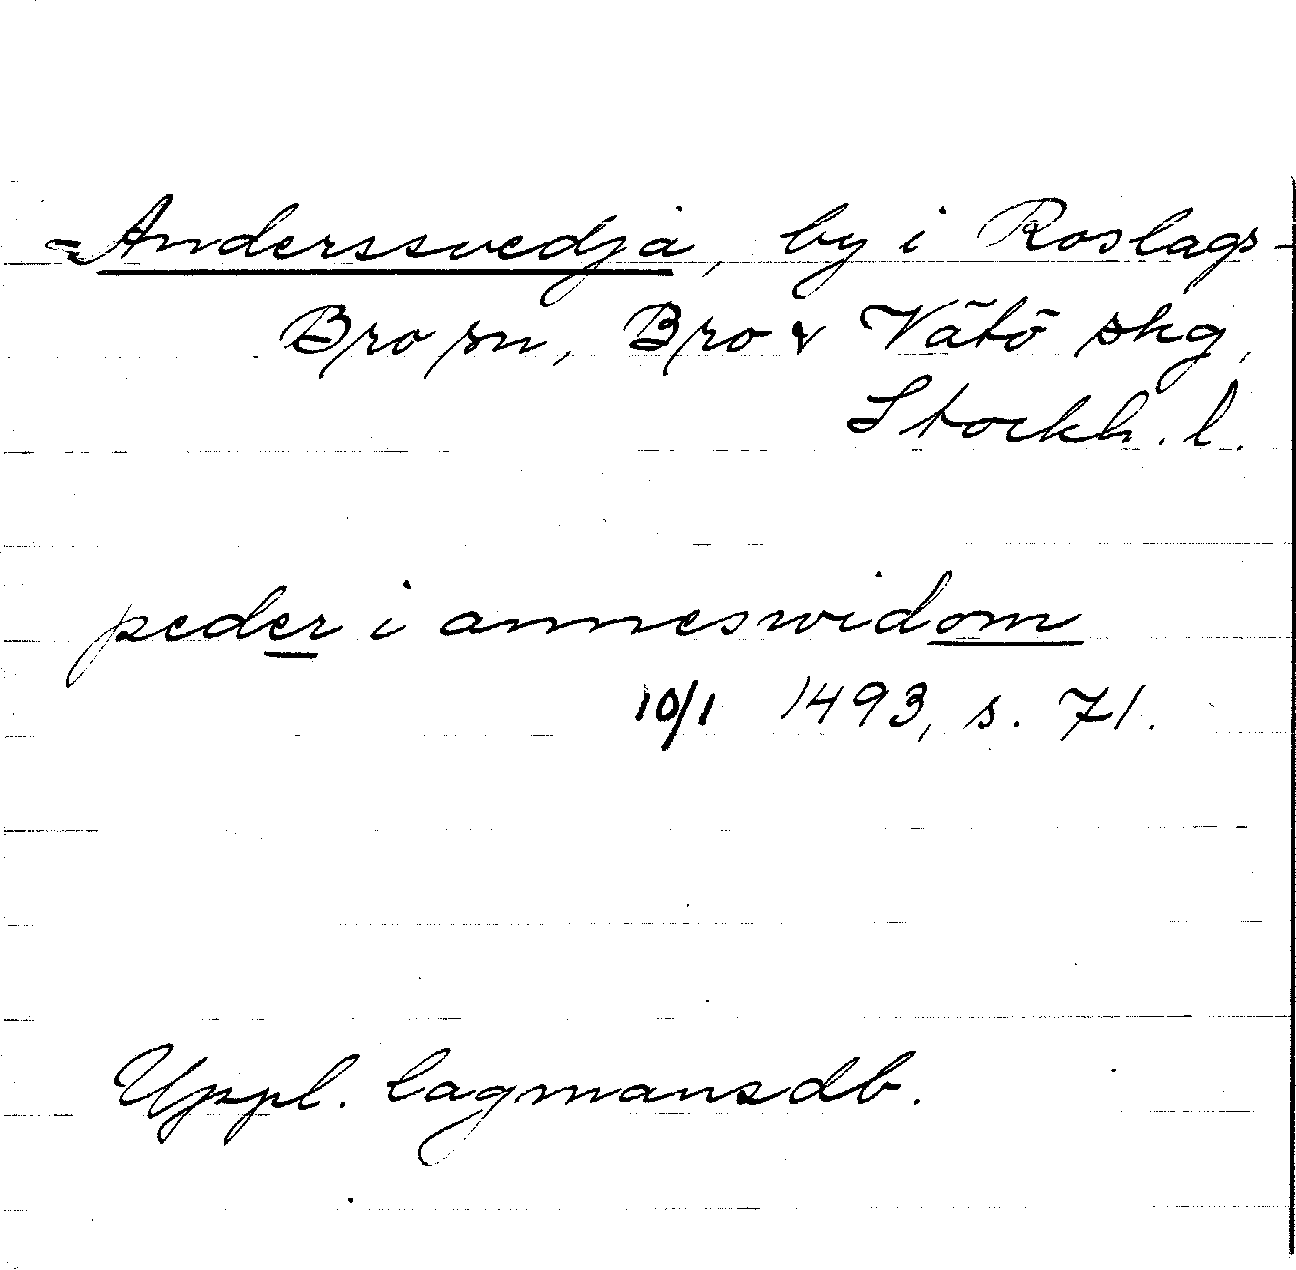 Anderssvedja, by i Roslags-
Bro sn, Bro & Vätö skg,
Stockh. l.
peder i anneswidom
10/1 1493, s. 71.
Uppl. lagmansdb.